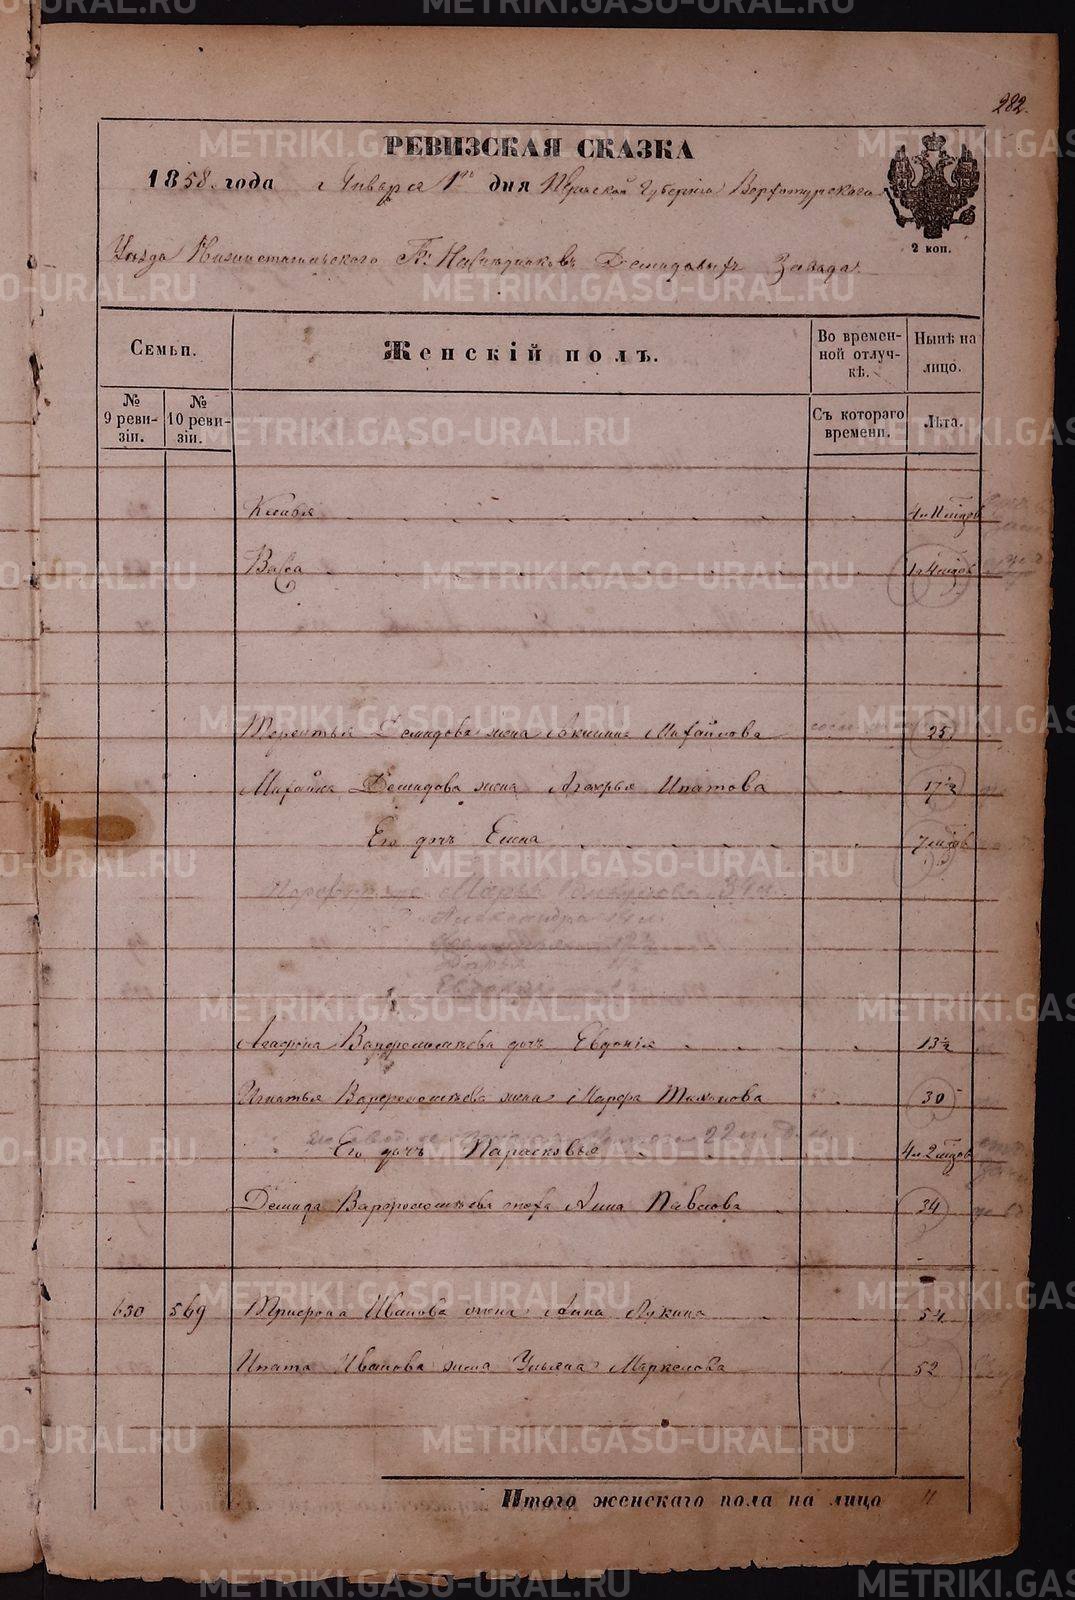 282.
РЕВИЗСКАЯ СКАЗКА
1858. года Января 1го дня Пермской Губернiи Верхотурскаго
2 коп.
Уѣзда Нижнетагильскаго Г: Наслѣдниковъ Демидовыхъ Завода.
Семьи. Женскiй полъ. Во временной отлучкѣ. Нынѣ на лицо.
№ 9 ревизiи. № 10 ревизiи. Съ котораго времени. Лѣта.
4 и 11 мѣцов
Васса 1 и 4 мѣцов
Терентья Демидова жена Акилина Михайлова 25
Михайла Демидова жена Агафья Ипатова 17½
Его дочь Елена 7 мѣцов
Марья 34
Александра
Дарья
Агафона Варфоломѣева дочь Евдокiя 13½
Игнатья Варфоломѣева жена Марфа 30
22
Его дочь Парасковья 4 и 2 мѣцов
Демида Варфоломѣева Анна Павлова 34
630 569 Трифона Иванова жена Анна Лукина 54
Ипата Иванова жена Ульяна Маркелова 52
Итого женскаго пола на лицо 11
METRIKI.GASO-URAL.RU